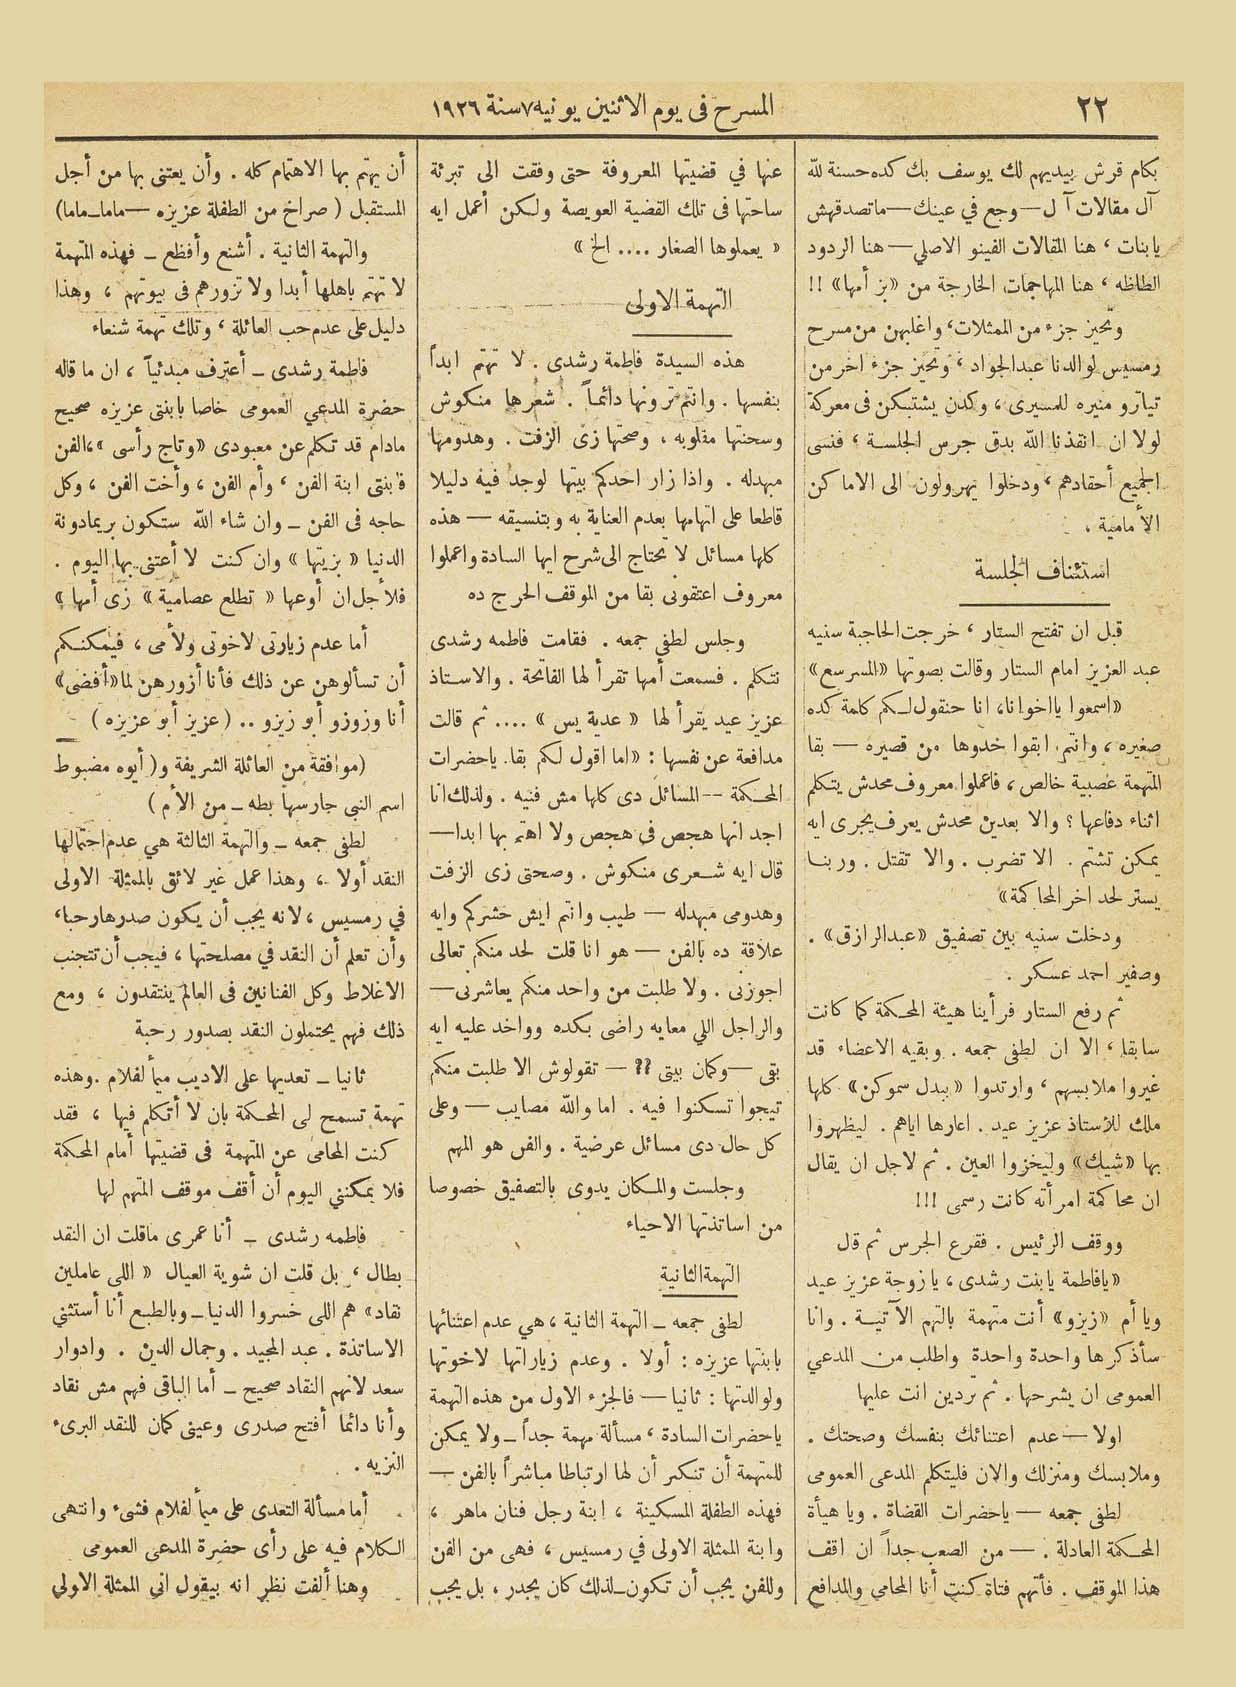 ٢٢
المسرح فى يوم الاثنين يونيه ٧ سنة ١٩٢٦
بكام قرش بيديهم لك يوسف بك كده حسنة لله
آل مقالات آ ل — وجع في عينك — ماتصدقهش
يابنات ، هنا المقالات الفينو الاصلي — هنا الردود
الطاظه ، هنا المهاجمات الخارجة من «بز أمها» !!
وتحيز جزء من الممثلات، واغلبهن من مسرح
رمسيس لوالدنا عبدالجواد ، وتحيز جزء اخر من
تياترو منيره للمسيرى ، وكدن يشتبكن فى معركة
لولا ان انقذنا الله بدق جرس الجلسة ، فنسى
الجميع أحقادهم ، ودخلوا يهرولون الى الاماكن
الأمامية .
استئناف الجلسة
قبل ان تفتح الستار ، خرجت الحاجبة سنيه
عبد العزيز امام الستار وقالت بصوتها «المسرسع»
«اسمعوا يااخوانا، انا حنقول لكم كلمة كده
صغيره ، وانتم ابقوا خدوها من قصيره — بقا
المتهمة عصبية خالص ، فاعملوا معروف محدش يتكلم
اثناء دفاعها ؟ والا بعدين محدش يعرف يجرى ايه
يمكن تشتم . الا تضرب . والا تقتل . وربنا
يستر لحد اخر المحاكمة»
ودخلت سنيه بين تصفيق «عبدالرازق» .
وصفير احمد عسكر .
ثم رفع الستار فرأينا هيئة المحكمة كما كانت
سابقا ، الا ان لطفى جمعه . وبقيه الاعضاء قد
غيروا ملابسهم ، وارتدوا «ببدل سموكن» كلها
ملك للأستاذ عزيز عيد . اعارها اياهم . ليظهروا
بها «شيك» وليخزوا العين . ثم لاجل ان يقال
ان محاكمة امرأته كانت رسمى !!!
ووقف الرئيس . فقرع الجرس ثم قال
«يافاطمة يابنت رشدى ، يازوجة عزيز عيد
ويا أم «زيزو» أنت متهمة بالتهم الآتية . وانا
سأذكرها واحدة واحدة واطلب من المدعي
العمومى ان يشرحها . ثم تردين انت عليها
اولا — عدم اعتنائك بنفسك وصحتك .
وملابسك ومنزلك والان فليتكلم المدعى العمومى
لطفى جمعه — ياحضرات القضاة . ويا هيأة
المحكمة العادلة . — من الصعب جداً ان اقف
هذا الموقف . فأتهم فتاة كنت أنا المحامي والمدافع
عنها في قضيتها المعروفة حتى وفقت الى تبرئة
ساحتها فى تلك القضية العويصة ولكن أعمل ايه
« يعملوها الصغار .... الخ »
التهمة الاولى
هذه السيدة فاطمة رشدى . لا تهتم ابداً
بنفسها . وانتم ترونها دائماً . شعرها منكوش
وسحنتها مقلوبه ، وصحتها زى الزفت . وهدومها
مبهدله . واذا زار احدكم بيتها لوجد فيه دليلا
قاطعا على اتهامها بعدم العناية به وبتنسيقه — هذه
كلها مسائل لا تحتاج الى شرح ايها السادة واعملوا
معروف اعتقونى بقا من الموقف الحرج ده
وجلس لطفى جمعه . فقامت فاطمه رشدى
تتكلم . فسمعت أمها تقرأ لها الفاتحة . والاستاذ
عزيز عيد يقرأ لها « عدية يس » .... ثم قالت
مدافعة عن نفسها : «اما اقول لكم بقا. ياحضرات
المحكمة — المسائل دى كلها مش فنيه . ولذلك انا
اجد انها هجص فى هجص ولا اهتم بها ابدا —
قال ايه شعرى منكوش . وصحتى زى الزفت
وهدومى مبهدله — طيب وانتم ايش حشركم وايه
علاقة ده بالفن — هو انا قلت لحد منكم تعالى
اجوزنى . ولا طلبت من واحد منكم يعاشرنى —
والراجل اللي معايه راضى بكده وواخد عليه ايه
بقى — وكمان بيتى ؟؟ — تقولوش الا طلبت منكم
تيجوا تسكنوا فيه . اما والله مصايب — وعلى
كل حال دى مسائل عرضية . والفن هو المهم
وجلست والمكان يدوى بالتصفيق خصوصا
من اساتذتها الاحياء
التهمة الثانية
لطفى جمعه — التهمة الثانية ، هي عدم اعتنائها
بابنتها عزيزه : أولا . وعدم زياراتها لاخوتها
ولوالدتها : ثانيا — فالجزء الاول من هذه التهمة
ياحضرات السادة ، مسألة مهمة جداً — ولا يمكن
للمتهمة أن تنكر أن لها ارتباطا مباشراً بالفن —
فهذه الطفلة المسكينة ، ابنة رجل فنان ماهر ،
وابنة الممثلة الاولى في رمسيس ، فهى من الفن
وللفن يجب أن تكون — لذلك كان يجدر ، بل يجب
أن يهتم بها الاهتمام كله . وأن يعتنى بها من أجل
المستقبل ( صراخ من الطفلة عزيزه — ماما — ماما)
والتهمة الثانية . أشنع وأفظع — فهذه المتهمة
لا تهتم باهلها أبدا ولا تزورهم فى بيوتهم ، وهذا
دليل على عدم حب العائلة ، وتلك تهمة شنعاء
فاطمة رشدى — أعترف مبدئياً ، ان ماقاله
حضرة المدعي العمومى خاصا بابنتى عزيزه صحيح
مادام قد تكلم عن معبودى «وتاج رأسى» ، الفن
فابنتى ابنة الفن ، وأم الفن ، وأخت الفن ، وكل
حاجه فى الفن — وان شاء الله ستكون بريمادونة
الدنيا « بزيتها » وان كنت لا أعتنى بها اليوم .
فلأجل ان أوعها « تطلع عصامية » زى أمها »
أما عدم زيارتى لاخوتى ولأمى ، فيمكنكم
أن تسألوهن عن ذلك فأنا أزورهن لما «أفضى»
أنا وزوزو أبو زيزو .. ( عزيز أبو عزيزه )
(موافقة من العائلة الشريفة و( أيوه مضبوط
اسم النبى جارسها بطه — من الأم )
لطفى جمعه — والتهمة الثالثة هي عدم احتمالها
النقد أولا ، وهذا عمل غير لائق بالممثلة الاولى
في رمسيس ، لانه يجب أن يكون صدرها رحبا ،
وأن تعلم أن النقد في مصلحتها ، فيجب أن تتجنب
الاغلاط وكل الفنانين فى العالم ينتقدون ، ومع
ذلك فهم يحتملون النقد بصدور رحبة
ثانيا — تعديها على الاديب ميمأ لفلام . وهذه
تهمة تسمح لى المحكمة بان لا أتكلم فيها ، فقد
كنت المحامى عن المتهمة فى قضيتها أمام المحكمة
فلا يمكننى اليوم أن أقف موقف المتهم لها
فاطمه رشدى — أنا عمرى ماقلت ان النقد
بطال ، بل قلت ان شوية العيال « اللى عاملين
نقاد» هم اللى خسروا الدنيا — وبالطبع أنا أستثني
الاساتذة . عبد المجيد . وجمال الدين . وادوار
سعد لانهم النقاد صحيح — أما الباقى فهم مش نقاد
وأنا دائما أفتح صدرى وعينى كمان للنقد البرىء
النزيه .
أما مسألة التعدى على ميمأ لفلام فشىء وانتهى
الكلام فيه على رأى حضرة المدعى العمومى
وهنا ألفت نظر انه بيقول انى الممثلة الاولى